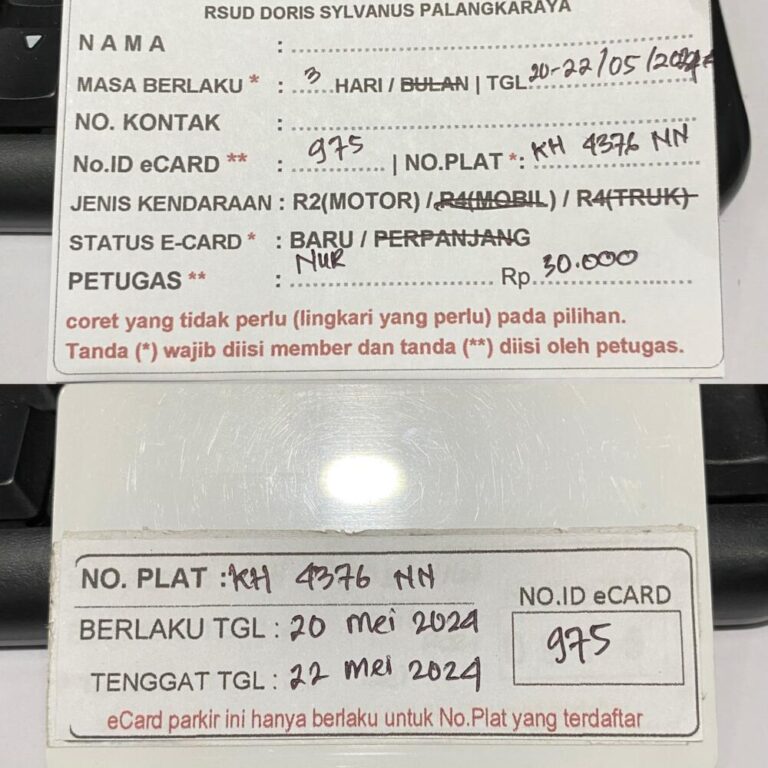 RSUD DORIS SYLVANUS PALANGKARAYA
NAMA :
MASA BERLAKU * : 3 HARI / BULAN | TGL 20-22/05/2024
NO. KONTAK :
No.ID eCARD ** : 975 | NO.PLAT *: KH 4376 NN
JENIS KENDARAAN : R2(MOTOR) / R4(MOBIL) / R4(TRUK)
STATUS E-CARD * : BARU / PERPANJANG
PETUGAS ** : NUR Rp. 30.000
coret yang tidak perlu (lingkari yang perlu) pada pilihan.
Tanda (*) wajib diisi member dan tanda (**) diisi oleh petugas.
NO. PLAT : KH 4376 NN
BERLAKU TGL : 20 Mei 2024
TENGGAT TGL : 22 Mei 2024
NO.ID eCARD
975
eCard parkir ini hanya berlaku untuk No.Plat yang terdaftar